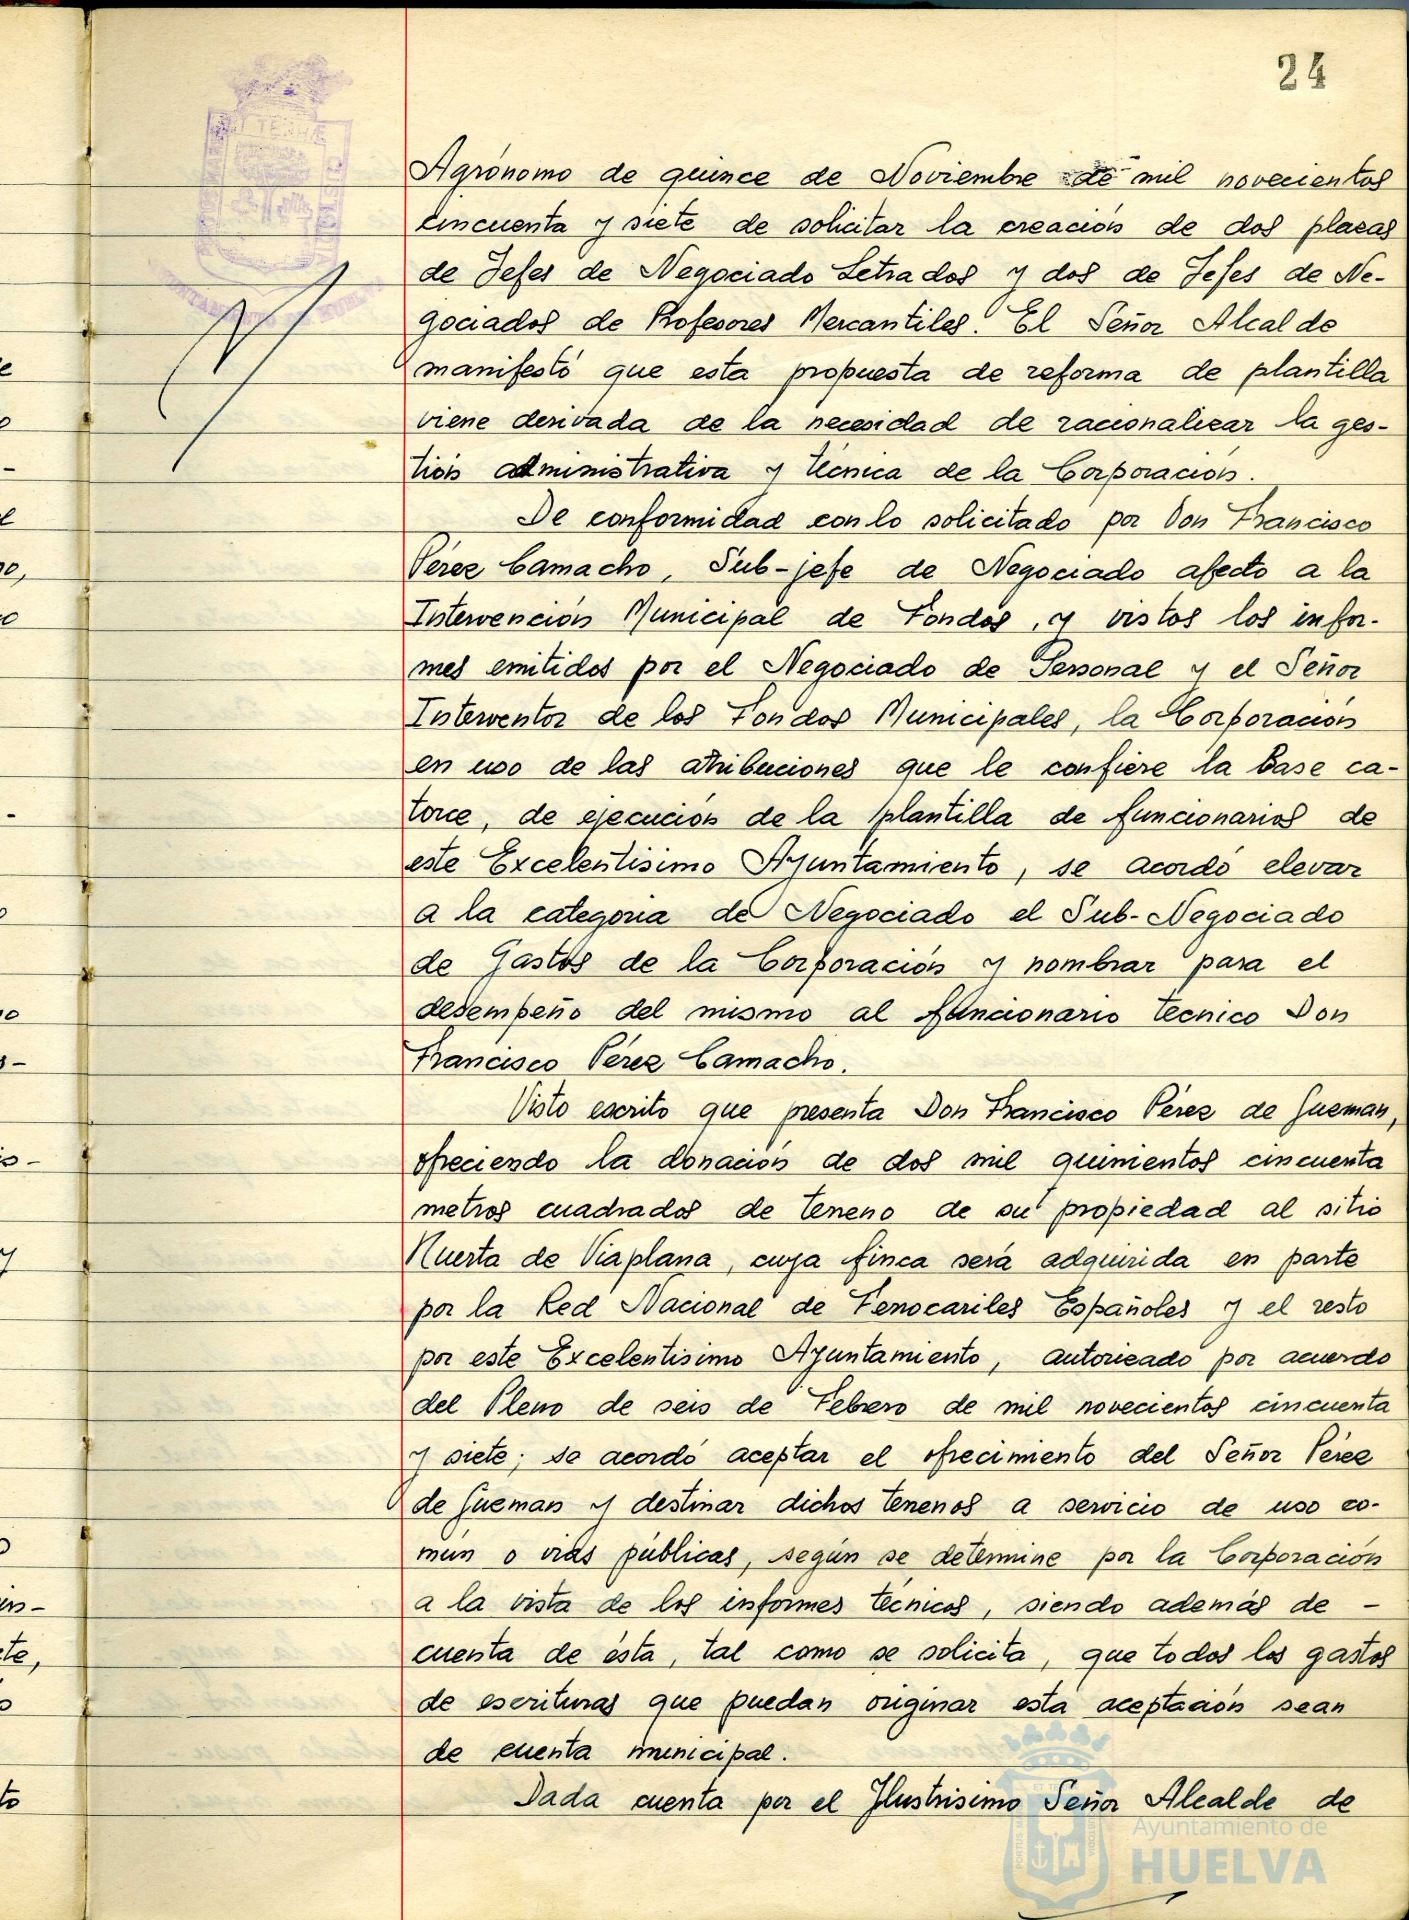 24
Agrónomo de quince de Noviembre de mil novecientos
cincuenta y siete de solicitar la creación de dos plazas
de Jefes de Negociado Letrados y dos de Jefes de Ne-
gociados de Profesores Mercantiles. El Señor Alcalde
manifestó que esta propuesta de reforma de plantilla
viene derivada de la necesidad de racionalizar la ges-
tión administrativa y técnica de la Corporación.
De conformidad con lo solicitado por Don Francisco
Pérez Camacho, Sub-jefe de Negociado afecto a la
Intervención Municipal de Fondos, y vistos los infor-
mes emitidos por el Negociado de Personal y el Señor
Interventor de los Fondos Municipales, la Corporación
en uso de las atribuciones que le confiere la Base ca-
torce, de ejecución de la plantilla de funcionarios de
este Excelentísimo Ayuntamiento, se acordó elevar
a la categoria de Negociado el Sub-Negociado
de Gastos de la Corporación y nombrar para el
desempeño del mismo al funcionario tecnico Don
Francisco Pérez Camacho.
Visto escrito que presenta Don Francisco Pérez de Guzman,
ofreciendo la donación de dos mil quinientos cincuenta
metros cuadrados de terreno de su propiedad al sitio
Huerta de Viaplana, cuya finca será adquirida en parte
por la Red Nacional de Ferrocariles Españoles y el resto
por este Excelentisimo Ayuntamiento, autorizado por acuerdo
del Pleno de seis de Febrero de mil novecientos cincuenta
y siete; se acordó aceptar el ofrecimiento del Señor Pérez
de Guzman y destinar dichos terrenos a servicio de uso co-
mún o vias públicas, según se determine por la Corporación
a la vista de los informes técnicos, siendo además de -
cuenta de ésta, tal como se solicita, que todos los gastos
de escrituras que puedan originar esta aceptación sean
de cuenta municipal.
Dada cuenta por el Ilustrisimo Señor Alcalde de
Ayuntamiento de
HUELVA